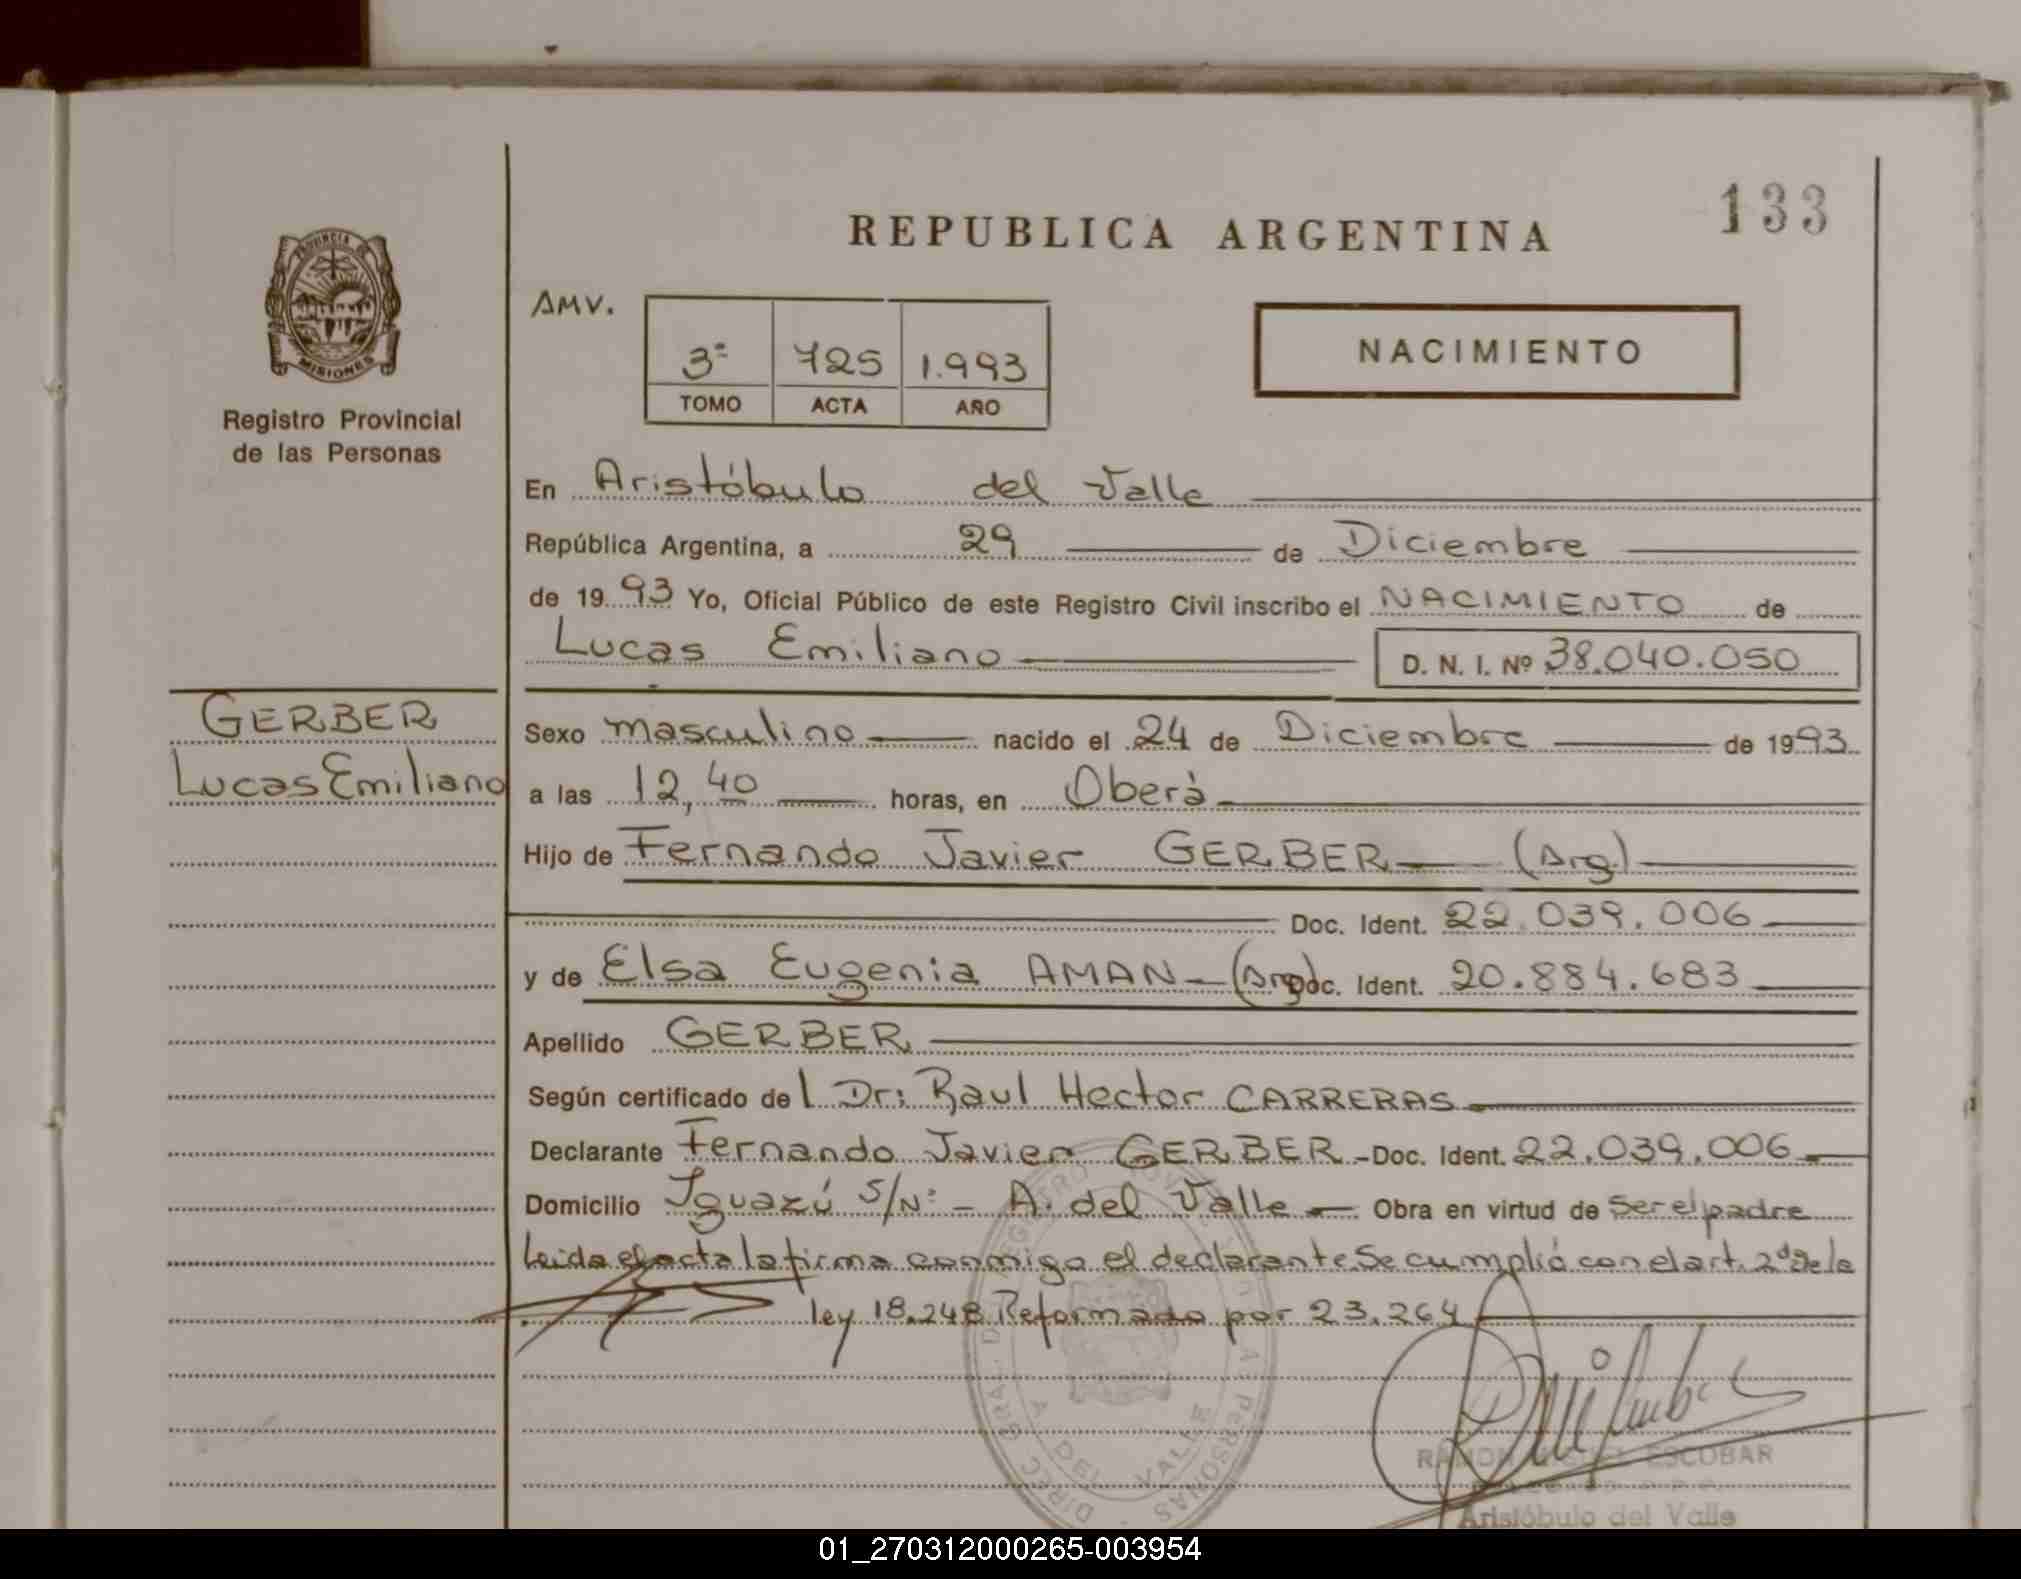 133
REPUBLICA ARGENTINA
PROVINCIA DE
MISIONES
Registro Provincial
de las Personas
AMV.
3º 725 1.993
TOMO ACTA AÑO
NACIMIENTO
En Aristóbulo del Valle
República Argentina, a 29 de Diciembre
de 1993 Yo, Oficial Público de este Registro Civil inscribo el NACIMIENTO de
Lucas Emiliano D. N. I. Nº 38.040.050
GERBER
Lucas Emiliano
Sexo masculino nacido el 24 de Diciembre de 1993
a las 12,40 horas, en Oberá
Hijo de Fernando Javier GERBER (Arg)
Doc. Ident. 22.039.006
y de Elsa Eugenia AMAN (Arg) Doc. Ident. 20.884.683
Apellido GERBER
Según certificado del Dr: Raul Hector CARRERAS
Declarante Fernando Javier GERBER - Doc. Ident. 22.039.006
Domicilio Iguazú S/Nº - A. del Valle - Obra en virtud de ser el padre
Leida el acta la firma conmigo el declarante. Se cumplió con el art. 2º de la
ley 18.248 Reformado por 23.264
A. DEL VALLE
RAMON MIGUEL ESCOBAR
Aristóbulo del Valle
01_270312000265-003954